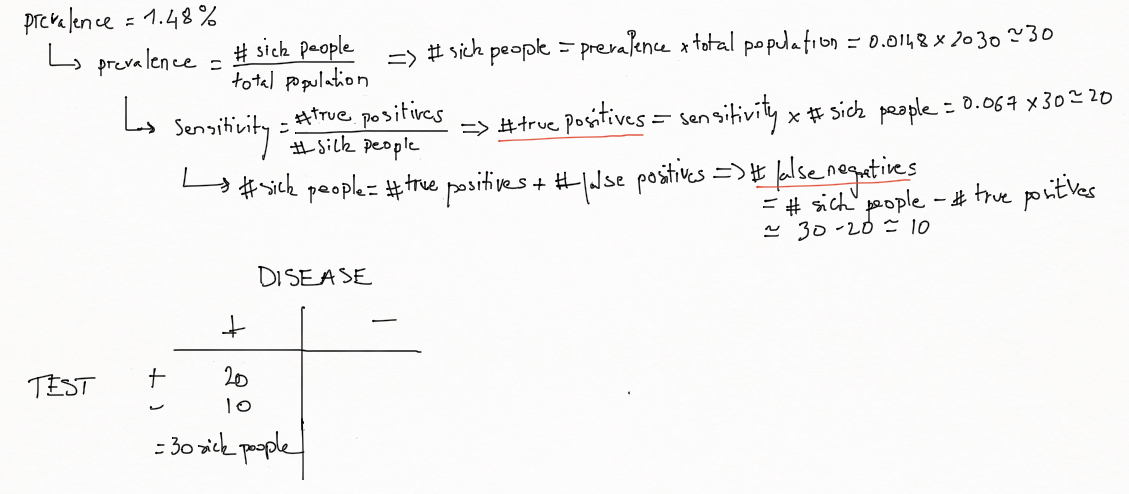 prevalence = 1.48%
prevalence = # sick people / total population => # sick people = prevalence x total population = 0.0148 x 2030 ≃ 30
Sensitivity = #true positives / # sick people => #true positives = sensitivity x # sick people = 0.067 x 30 ≃ 20
# sick people = # true positives + # false positives => # false negatives
= # sick people - # true positives
≃ 30 - 20 ≃ 10
DISEASE
+ -
TEST + 20
- 10
= 30 sick people